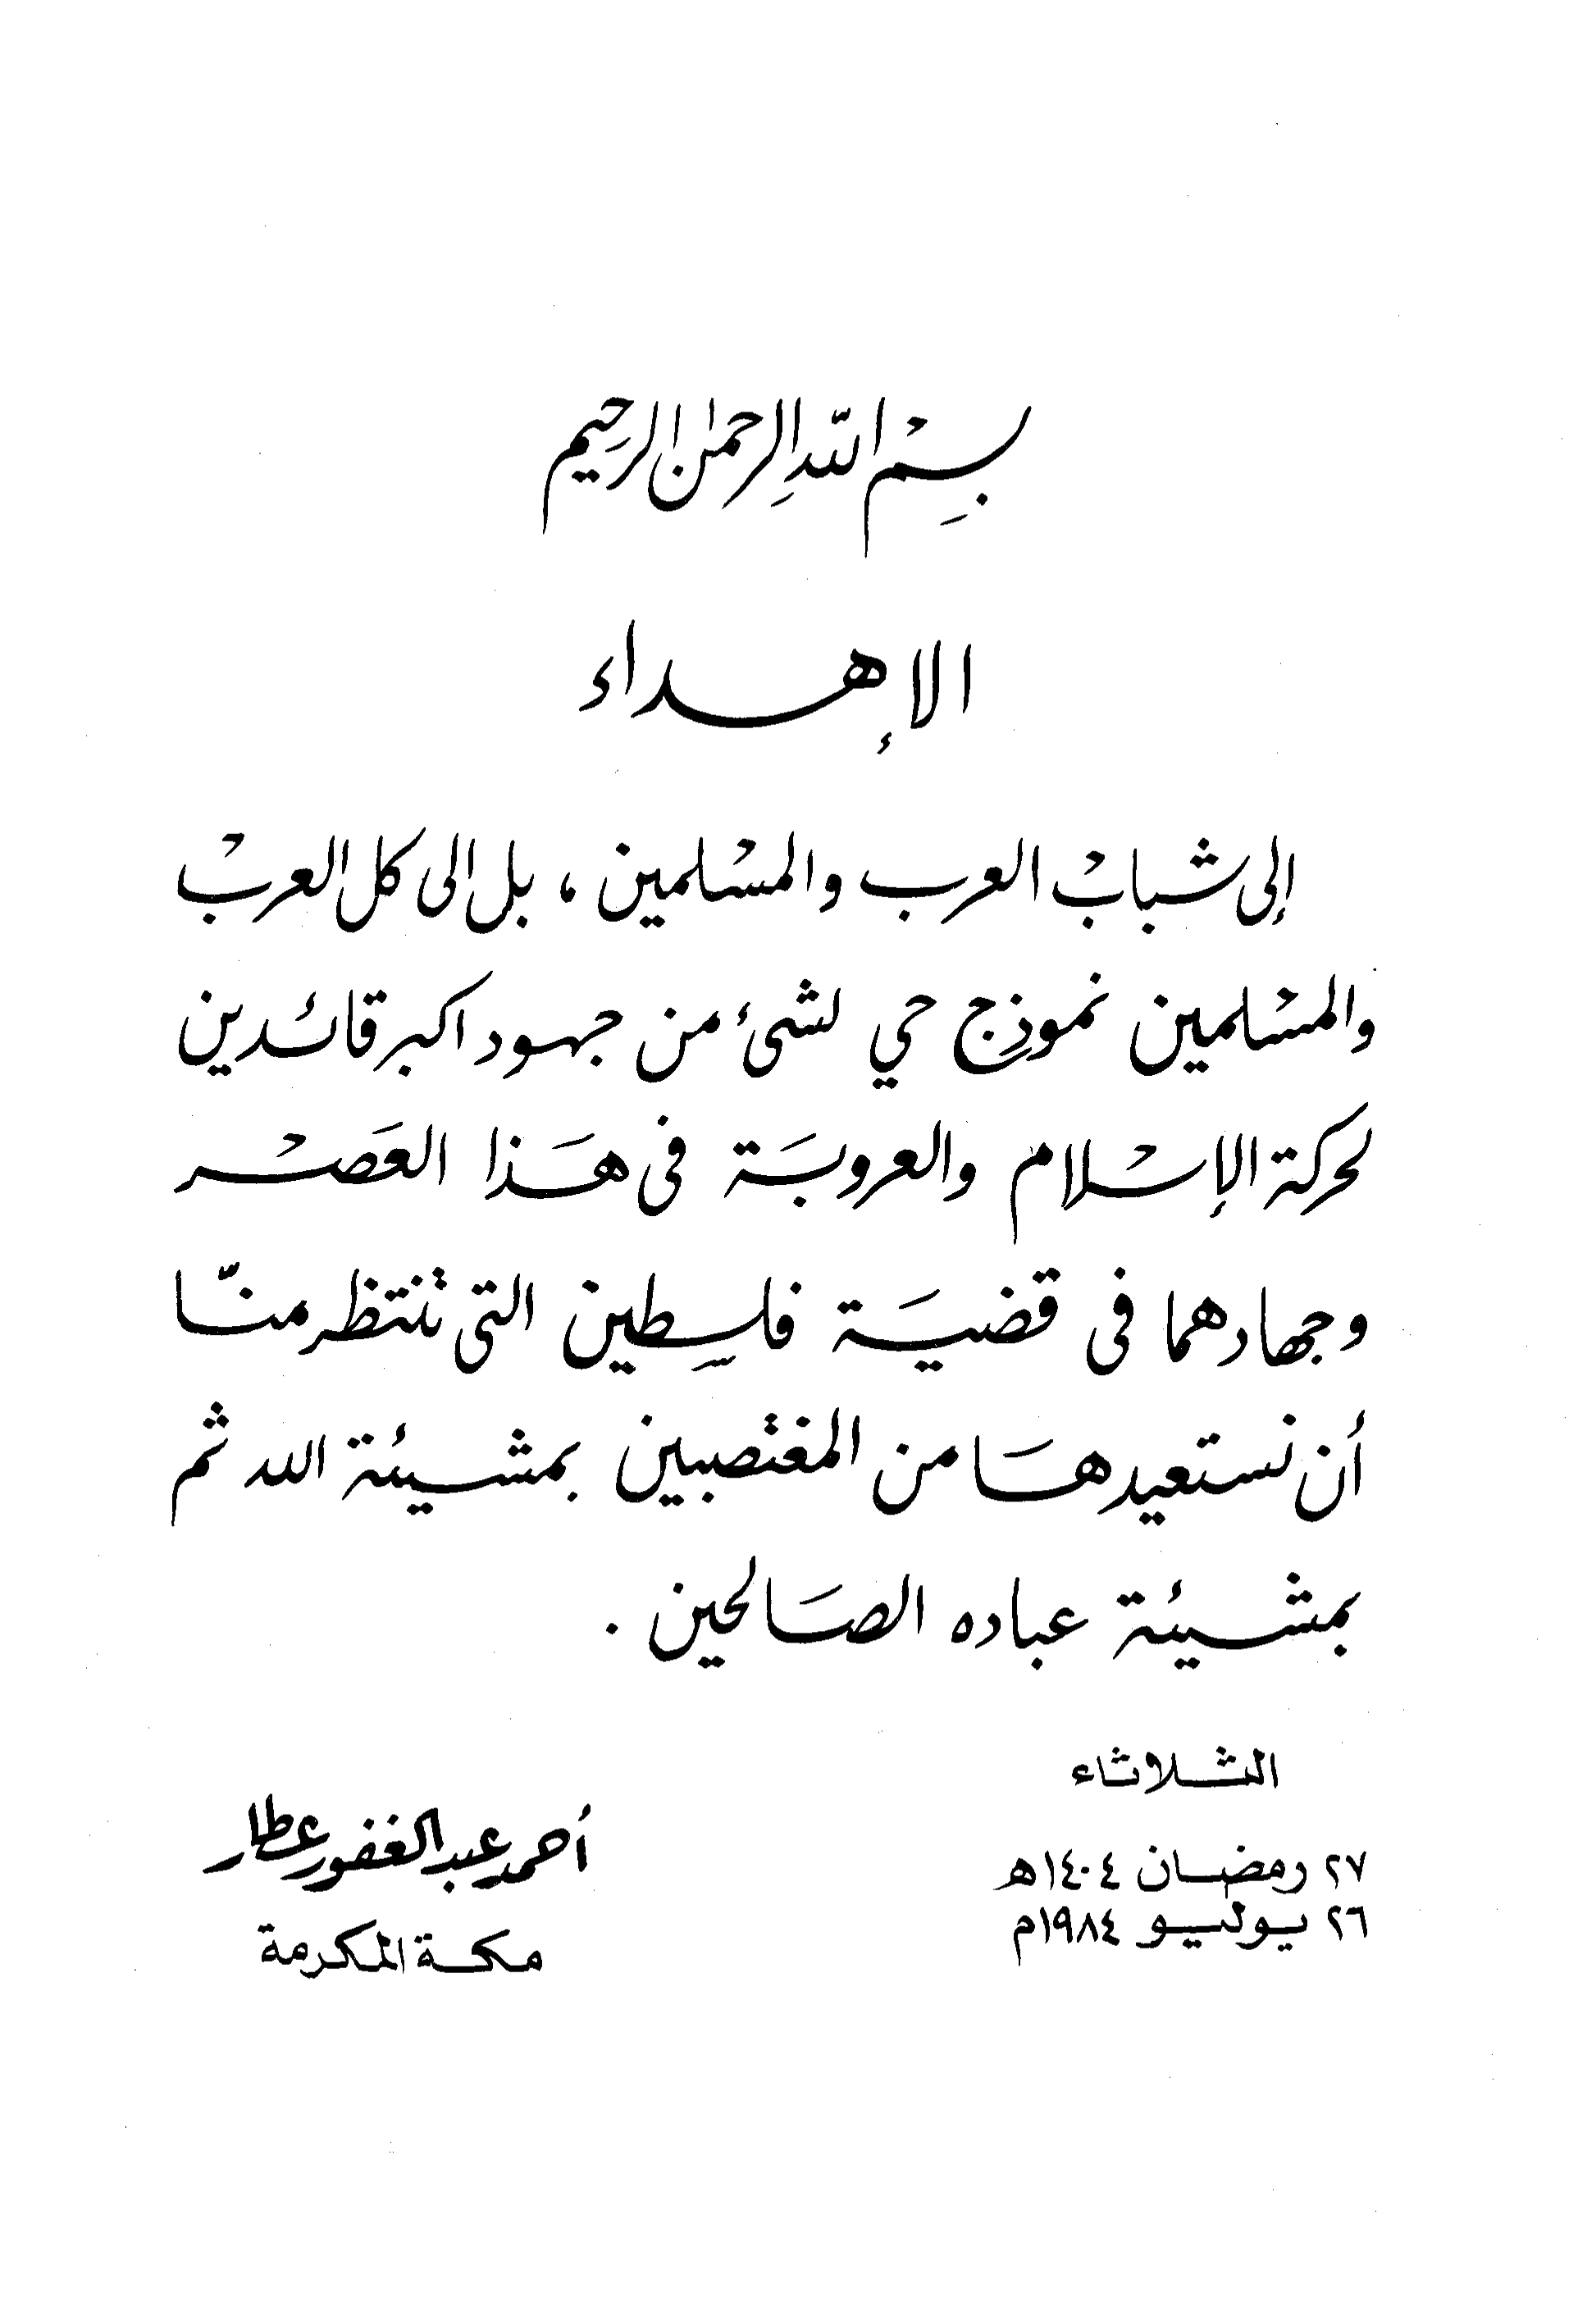 بسم الله الرحمن الرحيم
الإهداء
إلى شباب العرب والمسلمين ، بل الى كل العرب
والمسلمين نموذج حي لشئ من جهود اكبر قائدين
لحركة الإسلام والعروبة فى هذا العصر
وجهادهما فى قضية فلسطين التى تنتظر منّا
أن نستعيدها من المغتصبين بمشيئة الله ثم
بمشيئة عباده الصالحين .
الثلاثاء
٢٧ رمضان ١٤٠٤ه
٢٦ يوليو ١٩٨٤م
أحمد عبد الغفور عطار
مكة المكرمة